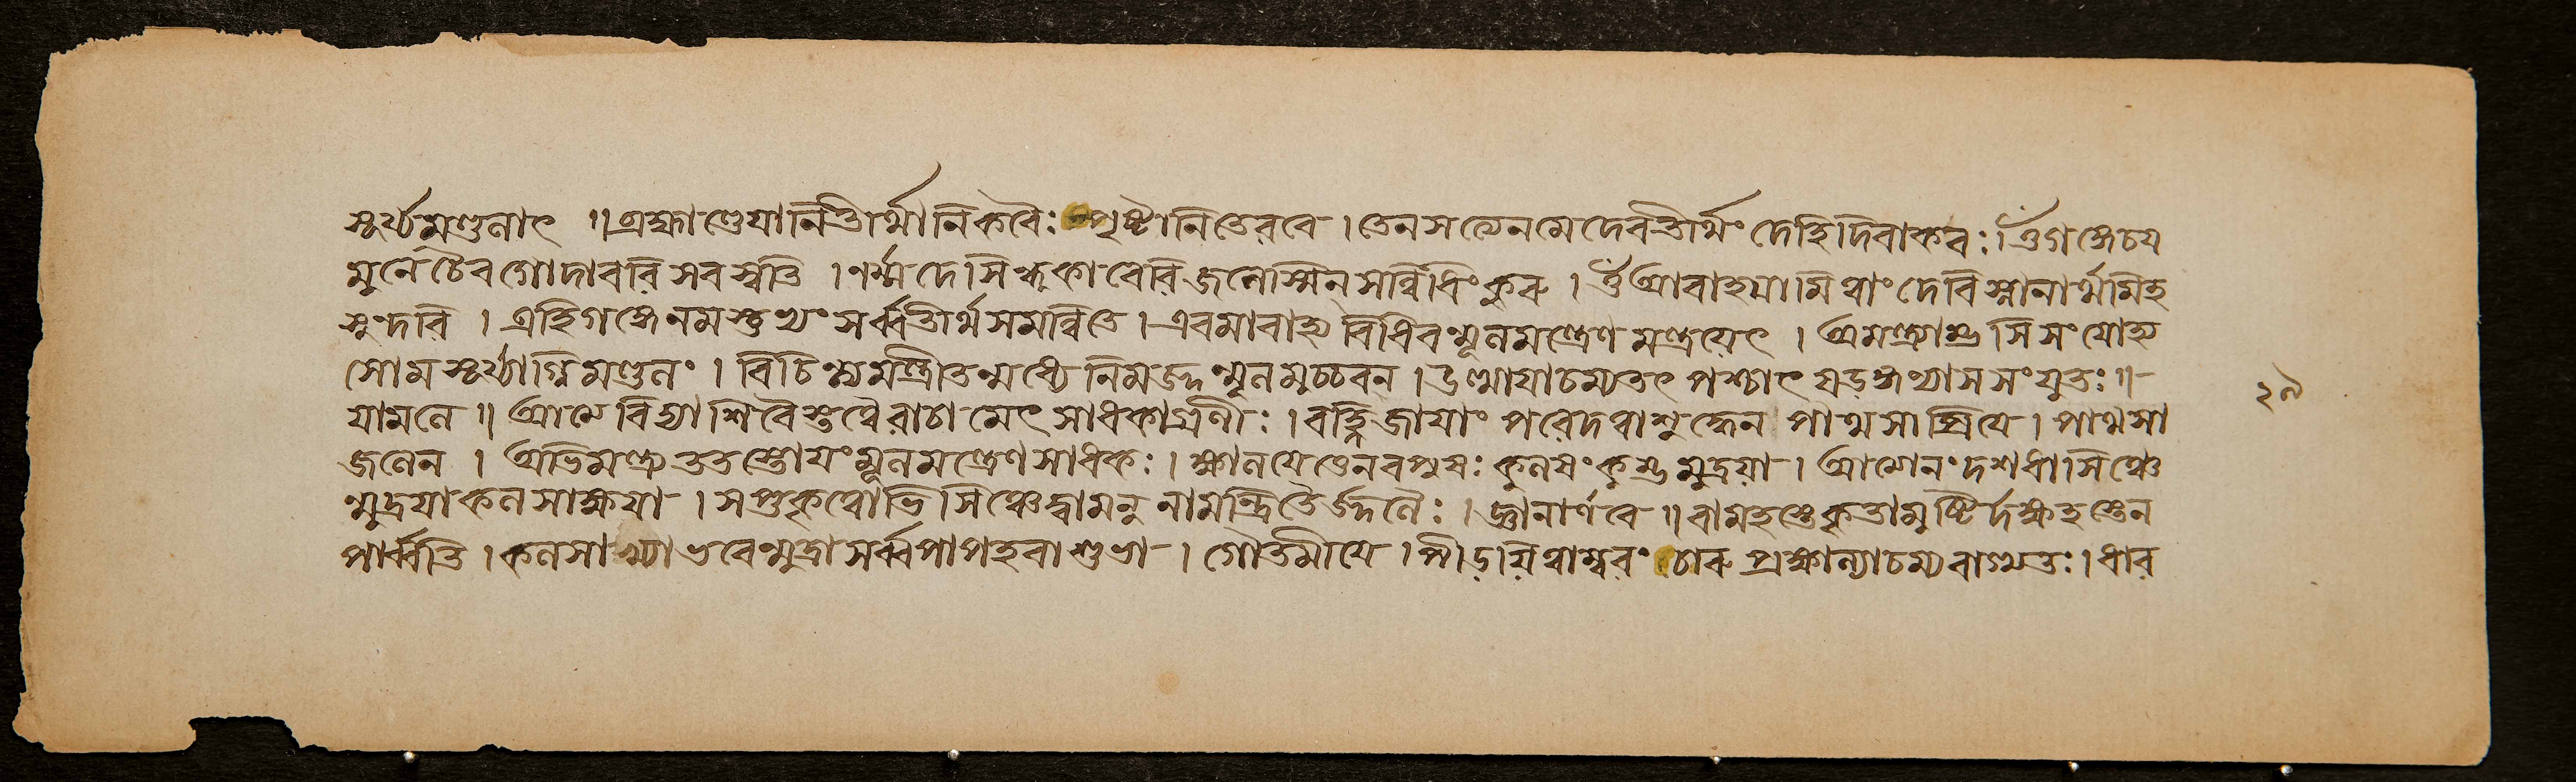 সূর্য্যমণ্ডলাৎ ॥ ব্রহ্মাণ্ডে যানি তীর্থানি করৈঃ স্পৃষ্টানি তে রবে । তেন সত্যেন মে দেব তীর্থং দেহি দিবাকর ঃ । ওঁ গঙ্গে চ য
মুনে চৈব গোদাবরি সরস্বতি । নর্ম্মদে সিন্ধু কাবেরি জলেস্মিন্ সন্নিধিং কুরু । ওঁ আবাহয়ামি ত্বাং দেবি স্নানার্থমিহ
সুংদরি । এহি গঙ্গে নমস্তুভ্যং সর্ব্বতীর্থসমন্বিতে । এবমাবাহ্য বিধিবন্মূলমন্ত্রেণ মন্ত্রয়েৎ । অমন্ত্র্যাম্ভসি সংযোজ্য
সোমসূর্য্যাগ্নিমণ্ডলং । বিচিন্ত্য মন্ত্রী তন্মধ্যে নিমজ্জন্মূলমুচ্চরন । উত্থায়াচম্য তৎ পশ্চাৎ ষড়ঙ্গন্যাসসংযুতঃ ॥
যামলে ॥ আত্মবিদ্যাশিবৈস্তত্বৈরাচামেৎ সাধকাগ্রণীঃ । বহ্নিজায়াং পঠেদত্বা শুদ্ধেন পাথসা প্রিয়ে । পাথসা
জলেন । অভিমন্ত্র্য ততস্তোয়ং মূলমন্ত্রেণ সাধকঃ । ক্ষালয়েত্তেন বপুষঃ কলুষং কুম্ভমুদ্রয়া । আত্মানং দশধা সিঞ্চে
ন্মুদ্রয়া কলসাহ্বয়া । সপ্তকৃত্বোভিসিঞ্চেদ্বা মনুনা মন্ত্রিতৈর্জ্জলৈঃ । জ্ঞানার্ণবে ॥ বামহস্তে কৃতা মুষ্টির্দক্ষহস্তেন
পার্ব্বতি । কলসাখ্যা ভবেন্মুদ্রা সর্ব্বপাপহরা শুভা । গৌতমীয়ে । পীড়য়িত্বাম্বরং চারু প্রক্ষাল্যাচম্য বাগ্যতঃ । ধার
২৯